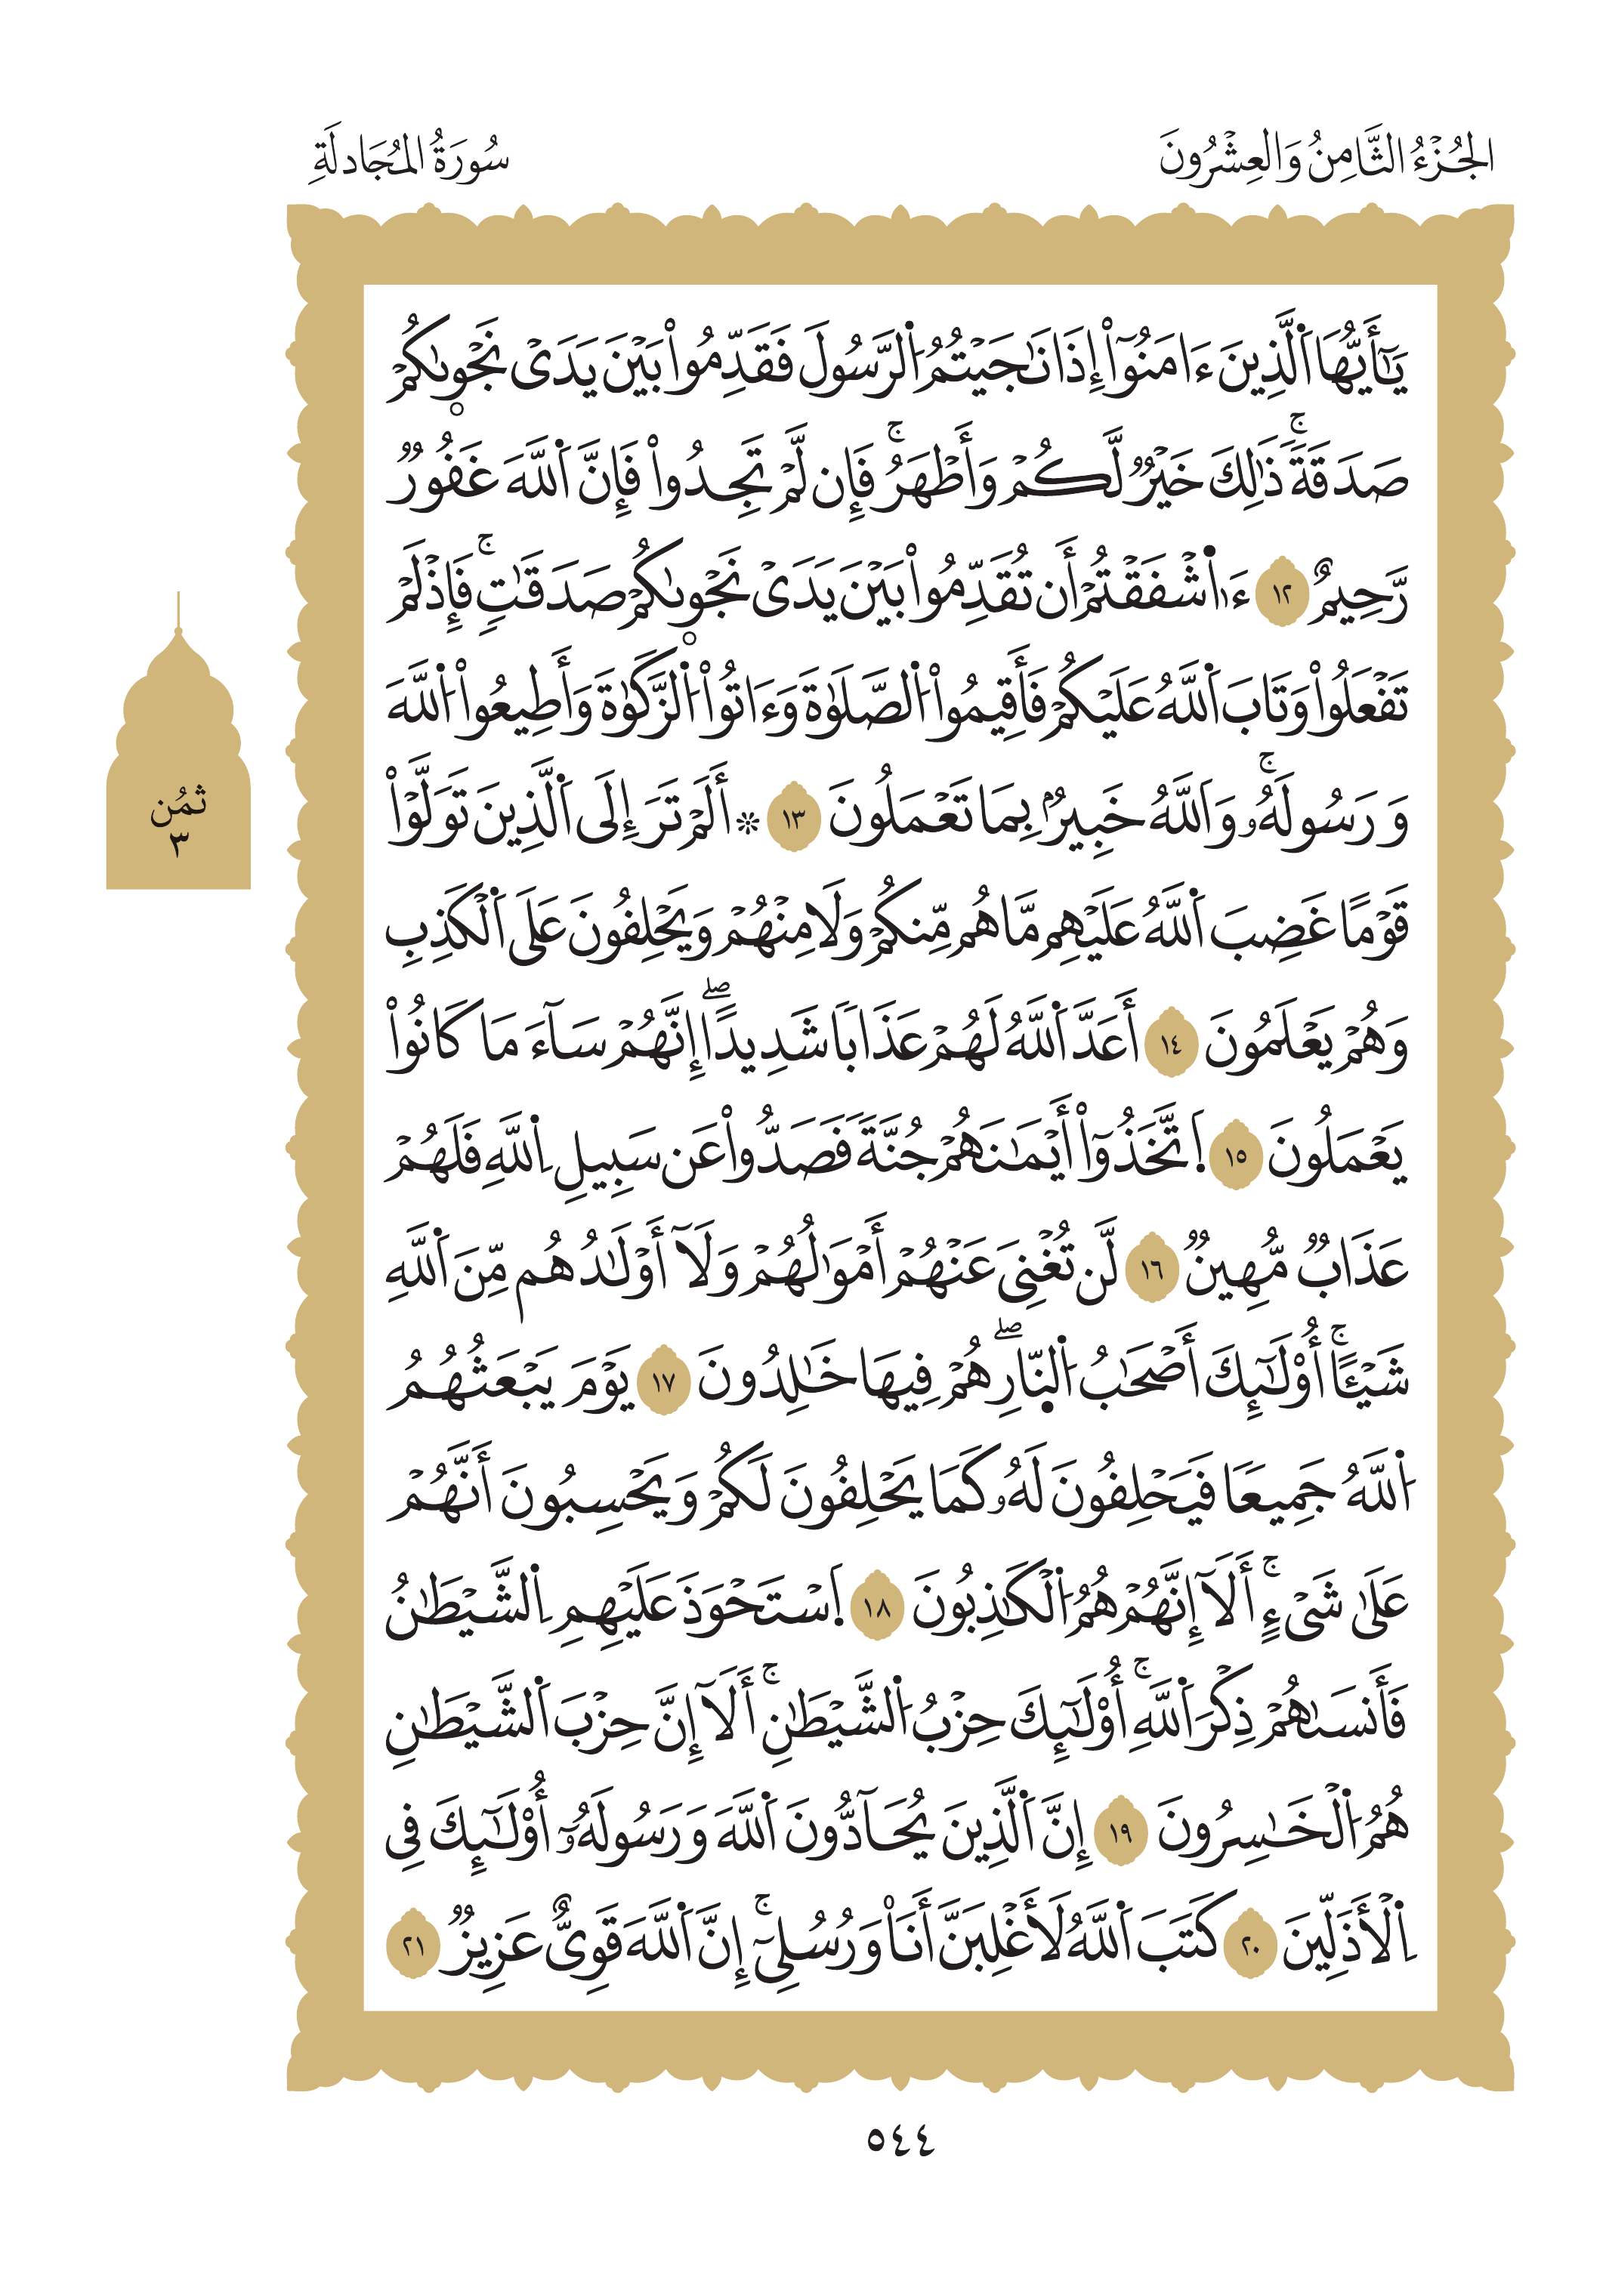 الجُزْءُ الثَّامِنُ وَالعِشْرُونَ
سُورَةُ المُجَادلَةِ
يَٰٓأَيُّهَا اَ۬لَّذِينَ ءَامَنُوٓاْ إِذَا نَٰجَيْتُمُ اُ۬لرَّسُولَ فَقَدِّمُواْ بَيْنَ يَدَيْ نَجْوٜىٰكُمْ
صَدَقَةٗۚ ذَٰلِكَ خَيْرٞ لَّكُمْ وَأَطْهَرُۚ فَإِن لَّمْ تَجِدُواْ فَإِنَّ اَ۬للَّهَ غَفُورٞ
رَّحِيمٌ ١٢ ءَا۬شْفَقْتُمْ أَن تُقَدِّمُواْ بَيْنَ يَدَيْ نَجْوٜىٰكُمْ صَدَقَٰتٖۚ فَإِذْ لَمْ
تَفْعَلُواْ وَتَابَ اَ۬للَّهُ عَلَيْكُمْ فَأَقِيمُواْ اُ۬لصَّلَوٰةَ وَءَاتُواْ اُ۬لزَّكَوٰةَ وَأَطِيعُواْ اُ۬للَّهَ
وَرَسُولَهُۥۚ وَاَ۬للَّهُ خَبِيرُۢ بِمَا تَعْمَلُونَ ١٣ ۞ أَلَمْ تَرَ إِلَى اَ۬لَّذِينَ تَوَلَّوْاْ
قَوْمًا غَضِبَ اَ۬للَّهُ عَلَيْهِم مَّا هُم مِّنكُمْ وَلَا مِنْهُمْ وَيَحْلِفُونَ عَلَى اَ۬لْكَذِبِ
وَهُمْ يَعْلَمُونَ ١٤ أَعَدَّ اَ۬للَّهُ لَهُمْ عَذَابٗا شَدِيدًاۖ إِنَّهُمْ سَآءَ مَا كَانُواْ
يَعْمَلُونَ ١٥ اَ۪تَّخَذُوٓاْ أَيْمَٰنَهُمْ جُنَّةٗ فَصَدُّواْ عَن سَبِيلِ اِ۬للَّهِ فَلَهُمْ
عَذَابٞ مُّهِينٞ ١٦ لَّن تُغْنِيَ عَنْهُمْ أَمْوَٰلُهُمْ وَلَآ أَوْلَٰدُهُم مِّنَ اَ۬للَّهِ
شَيْـًٔاۚ أُوْلَٰٓئِكَ أَصْحَٰبُ اُ۬لنّ۪ارِۖ هُمْ فِيهَا خَٰلِدُونَ ١٧ يَوْمَ يَبْعَثُهُمُ
اُ۬للَّهُ جَمِيعٗا فَيَحْلِفُونَ لَهُۥ كَمَا يَحْلِفُونَ لَكُمْ وَيَحْسِبُونَ أَنَّهُمْ
عَلَىٰ شَيْءٍۚ أَلَآ إِنَّهُمْ هُمُ اُ۬لْكَٰذِبُونَ ١٨ اَ۪سْتَحْوَذَ عَلَيْهِمِ اِ۬لشَّيْطَٰنُ
فَأَنسَىٰهُمْ ذِكْرَ اَ۬للَّهِۚ أُوْلَٰٓئِكَ حِزْبُ اُ۬لشَّيْطَٰنِۚ أَلَآ إِنَّ حِزْبَ اَ۬لشَّيْطَٰنِ
هُمُ اُ۬لْخَٰسِرُونَ ١٩ إِنَّ اَ۬لَّذِينَ يُحَآدُّونَ اَ۬للَّهَ وَرَسُولَهُۥٓ أُوْلَٰٓئِكَ فِي
اِ۬لْأَذَلِّينَ ٢٠ كَتَبَ اَ۬للَّهُ لَأَغْلِبَنَّ أَنَا۠ وَرُسُلِيٓۚ إِنَّ اَ۬للَّهَ قَوِيٌّ عَزِيزٞ ٢١
ثمُن
٣
٥٤٤